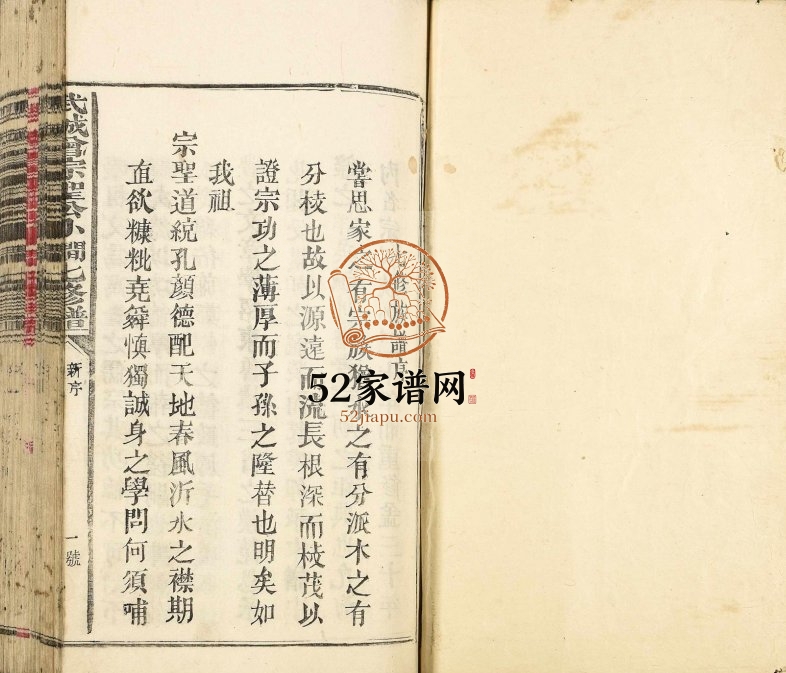 修族譜序
嘗思家之有宗族猶水之有分派木之有
分枝也故以源遠而流長根深而枝茂以
證宗功之薄厚而子孫之隆替也明矣如
我祖
宗聖道統孔顏德配天地春風沂水之襟期
直欲糠粃堯舜慎獨誠身之學問何須哺
武城曾宗聖公小澗七修譜
新序
一號
52家谱网
52jiapu.com